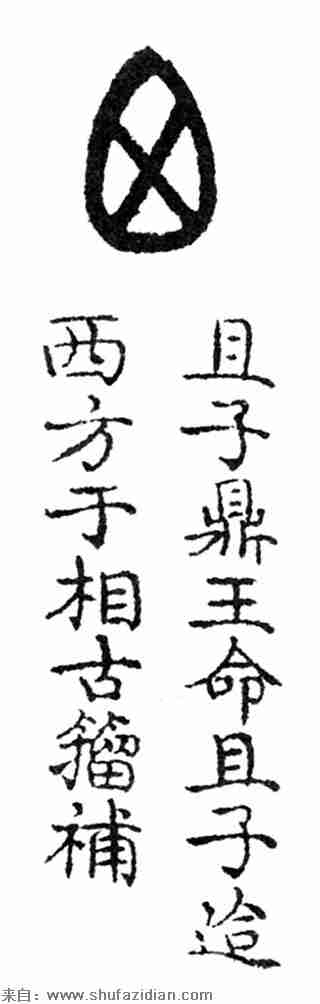 且子鼎王命且子
西方于相古籀補
来自：www.shufazidian.com